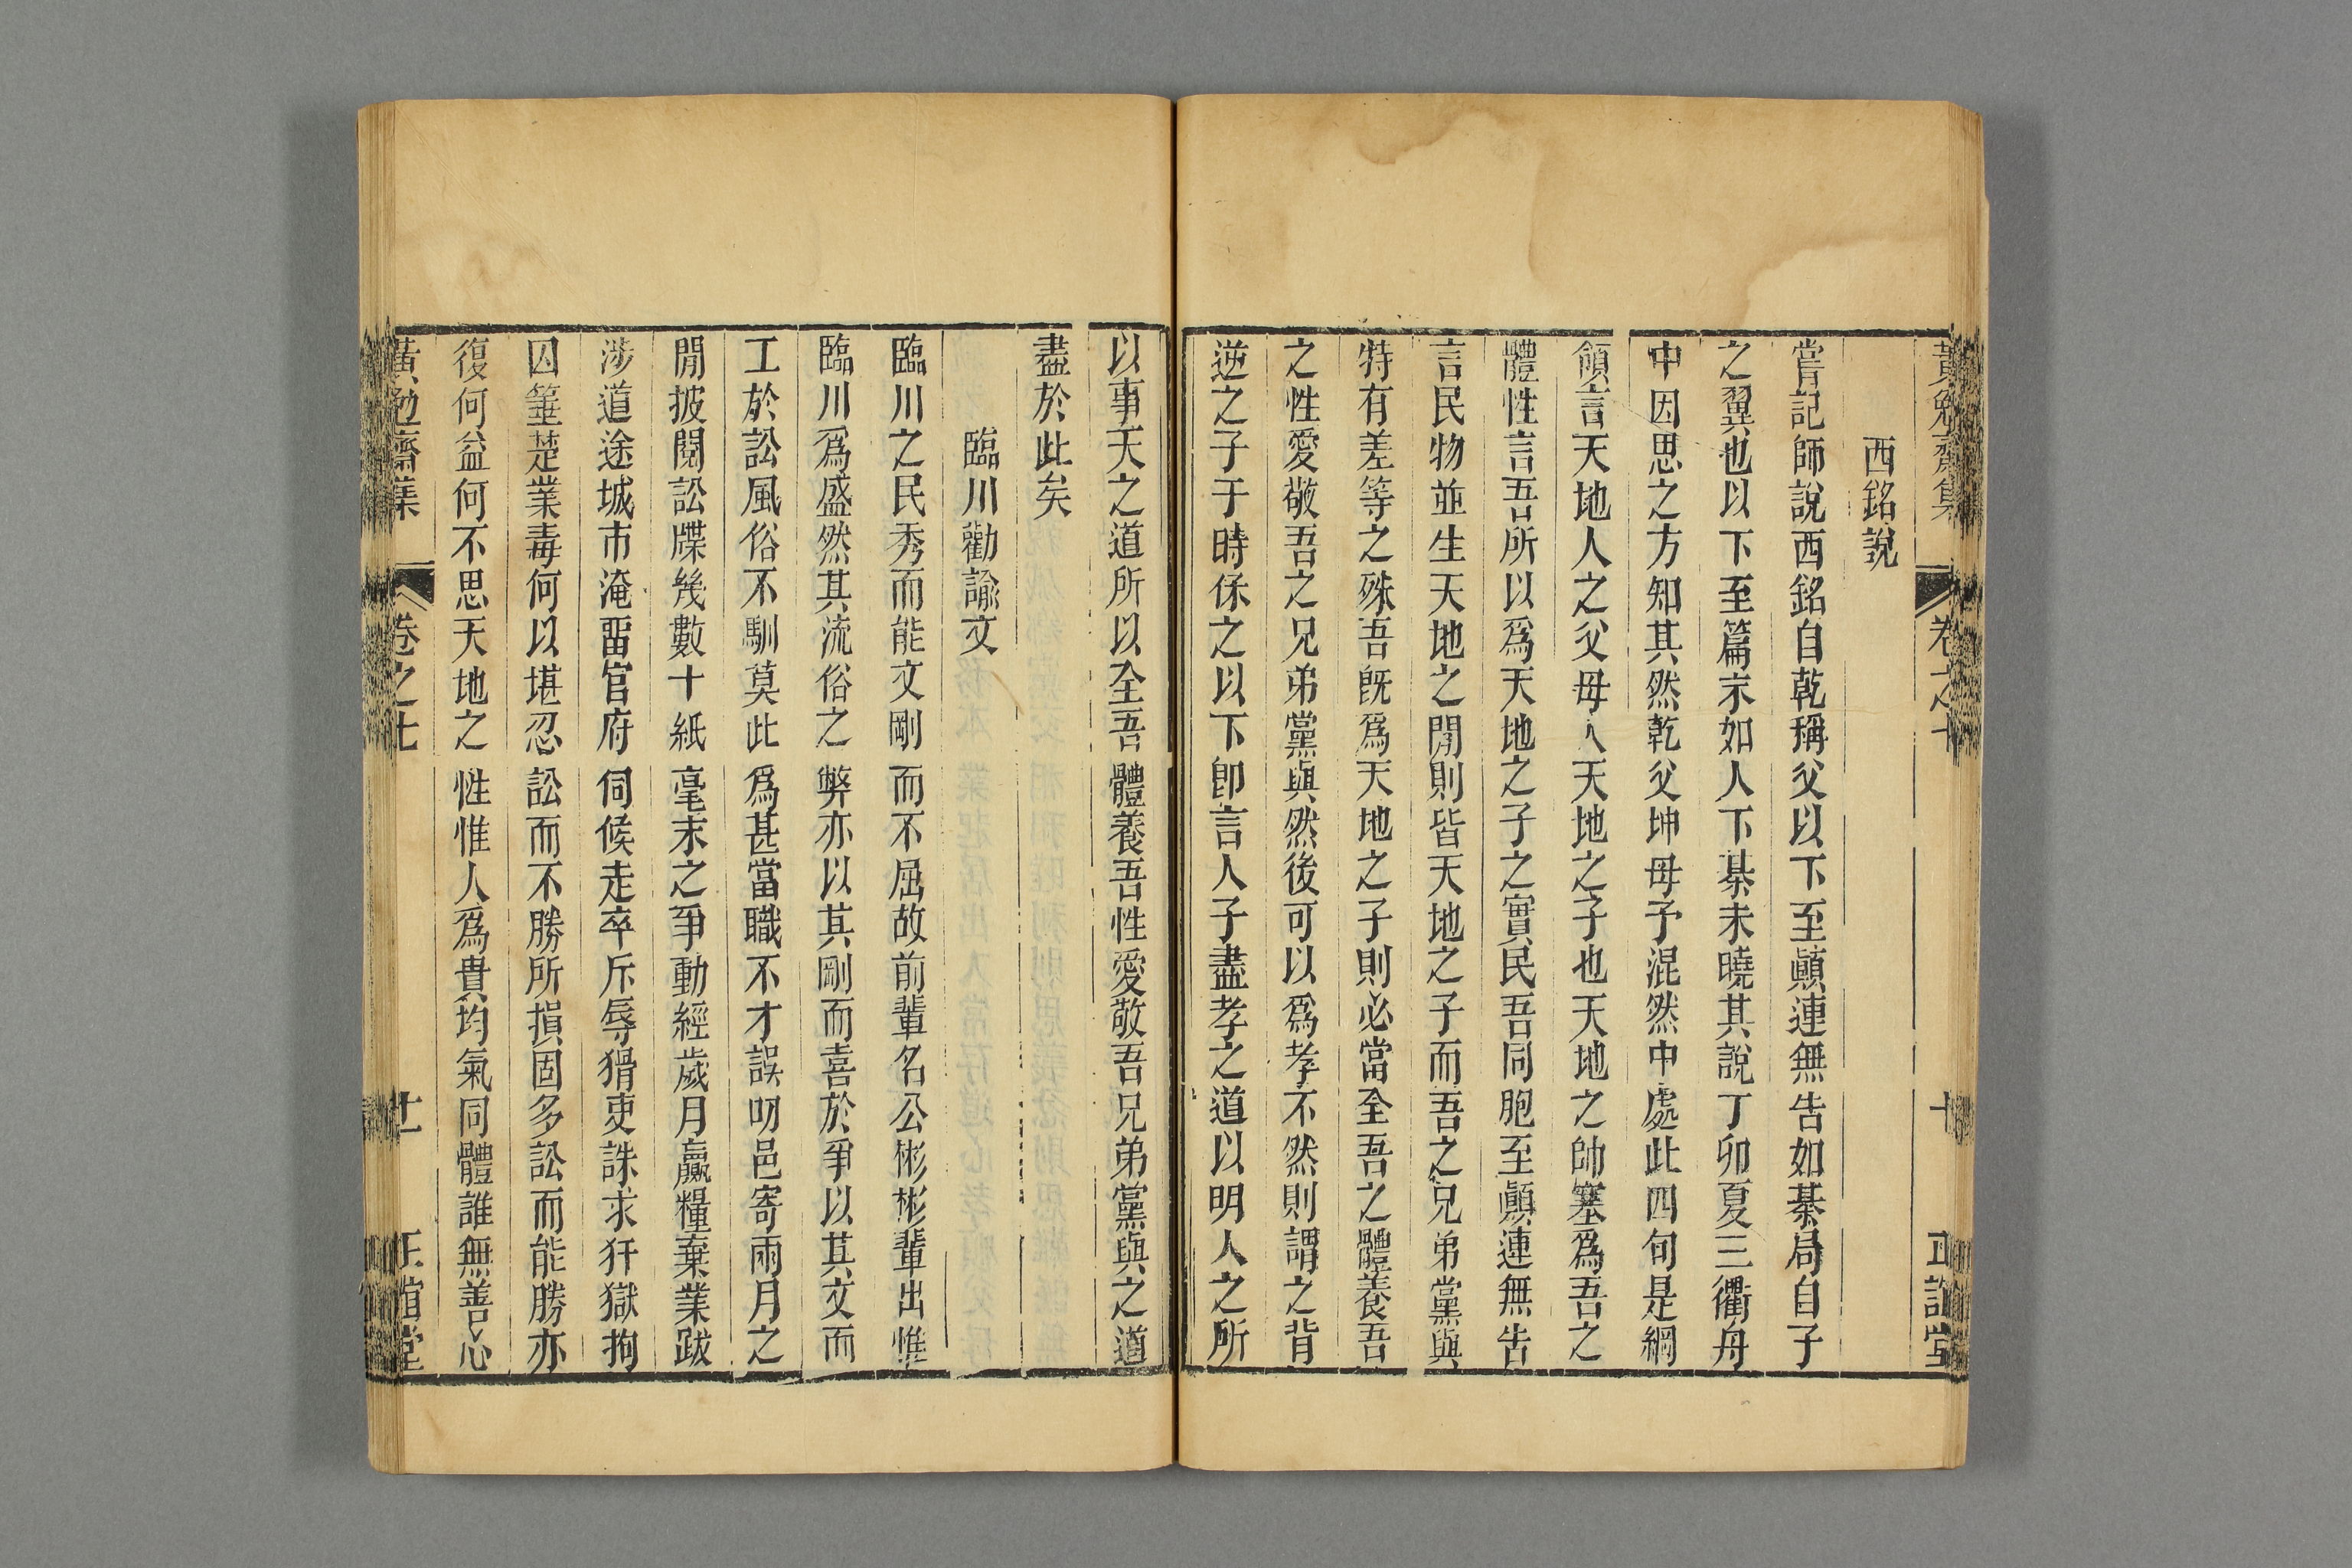 西銘說
嘗記師說西銘自乾稱父以下至顚連無告如棊局自子
之翼也以下至篇末如人下棊未曉其說丁卯夏三衢舟
中因思之方知其然乾父坤母予混然中處此四句是綱
領言天地人之父母人天地之子也天地之帥塞爲吾之
體性言吾所以爲天地之子之實民吾同胞至顚連無告
言民物並生天地之閒則皆天地之子而吾之兄弟黨與
特有差等之殊吾旣爲天地之子則必當全吾之體養吾
之性愛敬吾之兄弟黨與然後可以爲孝不然則謂之背
逆之子于時保之以下卽言人子盡孝之道以明人之所
以事天之道所以全吾體養吾性愛敬吾兄弟黨與之道
盡於此矣
臨川勸諭文
臨川之民秀而能文剛而不屈故前輩名公彬彬輩出惟
臨川爲盛然其流俗之弊亦以其剛而喜於爭以其文而
工於訟風俗不馴莫此爲甚當職不才誤叨邑寄兩月之
閒披閱訟牒幾數十紙毫末之爭動經歲月贏糧棄業跋
涉道途城市淹留官府伺候走卒斥辱猾吏誅求犴獄拘
囚箠楚業毒何以堪忍訟而不勝所損固多訟而能勝亦
復何益何不思天地之性惟人爲貴均氣同體誰無善心
黃勉齋集 卷之七 十一 正誼堂